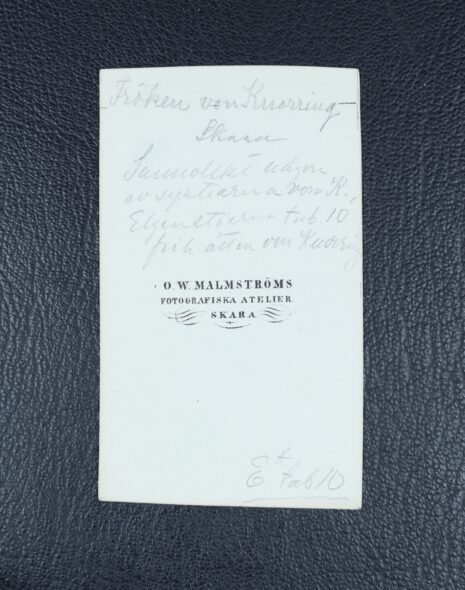 Fröken von Knorring
Skara
Sannolikt någon
av systrarna von K.,
Elgenstierna tab. 10
frih. ätten von Knorring
O. W. MALMSTRÖMS
FOTOGRAFISKA ATELIER
SKARA
E* tab 10